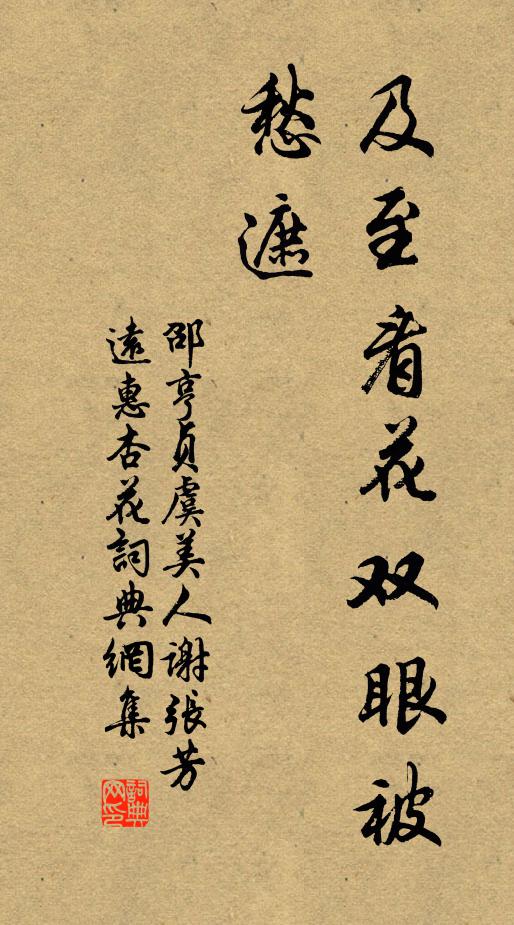 及至看花双眼被
愁遮
邵亨貞虞美人謝張芳
遠惠杏花詞典網集
詞典
网印